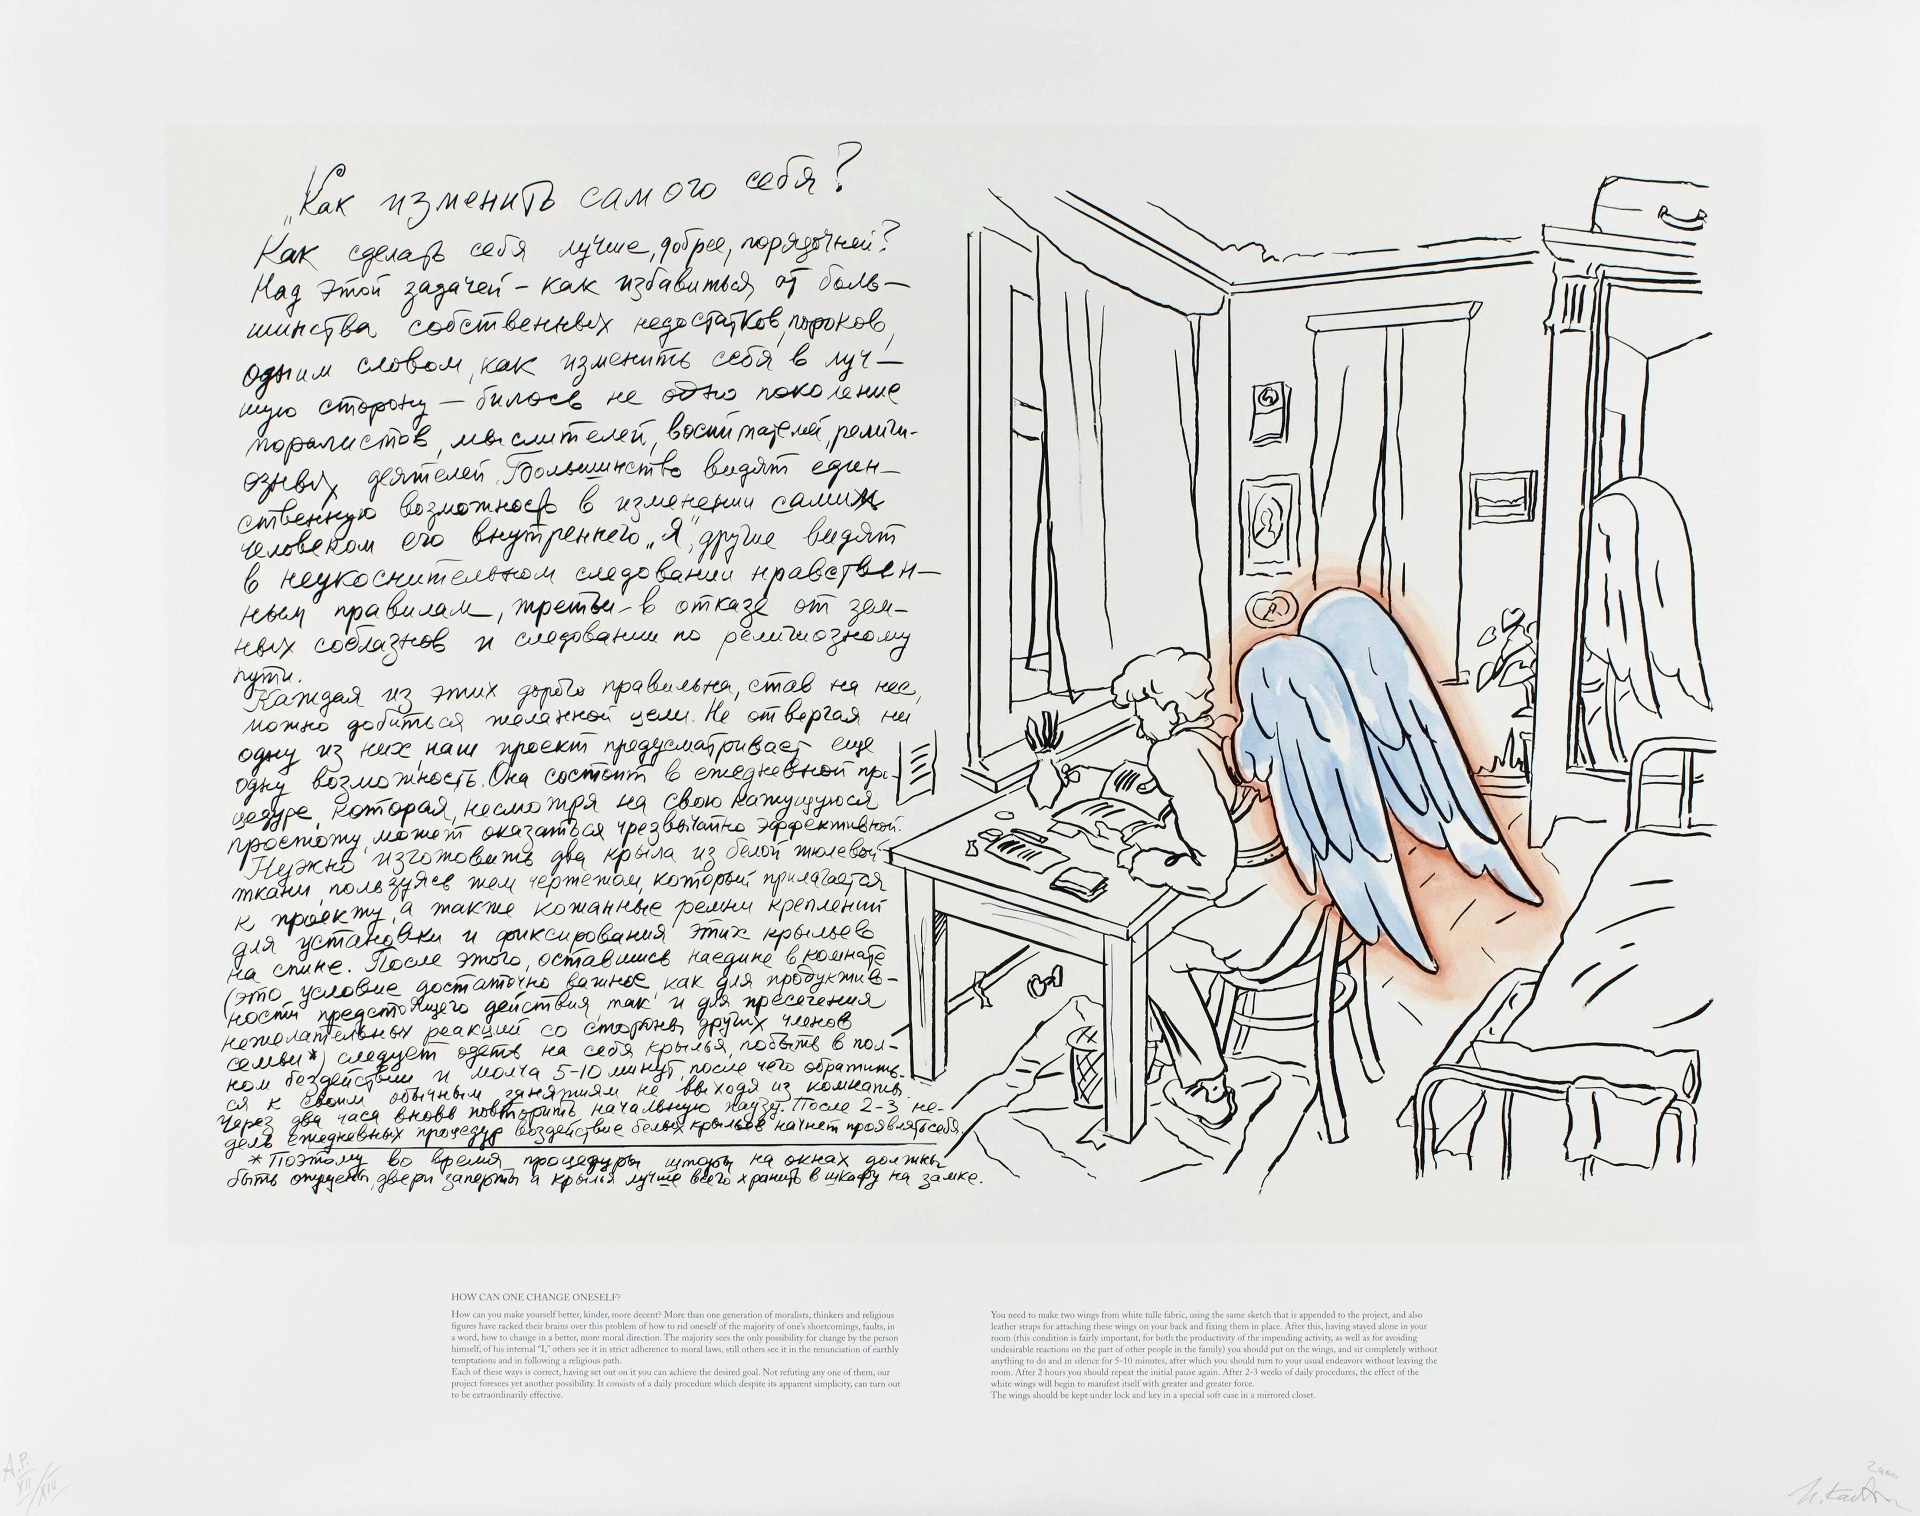 „Как изменить самого себя?
Как сделать себя лучше, добрее, порядочней?
Над этой задачей – как избавиться от боль–
шинства собственных недостатков, пороков,
одним словом, как изменить себя в луч–
шую сторону – билось не одно поколение
моралистов, мыслителей, воспитателей, религи-
озных деятелей. Большинство видят един–
ственную возможность в изменении самим
человеком его внутреннего „Я", другие видят
в неукоснительном следовании нравствен–
ным правилам, третьи – в отказе от зем–
ных соблазнов и следовании по религиозному
пути.
Каждая из этих дорог правильна, став на нее,
можно добиться желанной цели. Не отвергая ни
одну из них, наш проект предусматривает еще
одну возможность. Она состоит в ежедневной про-
цедуре, которая, несмотря на свою кажущуюся
простоту, может оказаться чрезвычайно эффективной.
Нужно изготовить два крыла из белой тюлевой
ткани, пользуясь тем чертежом, который прилагается
к проекту, а также кожанные ремни креплений
для установки и фиксирования этих крыльев
на спине. После этого, оставшись наедине в комнате
(это условие достаточно важное как для продуктив–
ности предстоящего действия, так и для пресечения
нежелательных реакций со стороны других членов
семьи*) следует одеть на себя крылья, побыть в пол–
ном бездействии и молча 5-10 минут, после чего обратить-
ся к своим обычным занятиям не выходя из комнаты.
Через два часа вновь повторить начальную паузу. После 2-3 не-
дель ежедневных процедур воздействие белых крыльев начнет проявлять себя
* Поэтому во время процедуры шторы на окнах должны
быть опущены, двери заперты и крылья лучше всего хранить в шкафу на замке.
HOW CAN ONE CHANGE ONESELF?
How can you make yourself better, kinder, more decent? More than one generation of moralists, thinkers and religious
figures have racked their brains over this problem of how to rid oneself of the majority of one's shortcomings, faults, in
a word, how to change in a better, more moral direction. The majority sees the only possibility for change by the person
himself, of his internal "I," others see it in strict adherence to moral laws, still others see it in the renunciation of earthly
temptations and in following a religious path.
Each of these ways is correct, having set out on it you can achieve the desired goal. Not refuting any one of them, our
project foresees yet another possibility. It consists of a daily procedure which despite its apparent simplicity, can turn out
to be extraordinarily effective.
You need to make two wings from white tulle fabric, using the same sketch that is appended to the project, and also
leather straps for attaching these wings on your back and fixing them in place. After this, having stayed alone in your
room (this condition is fairly important, for both the productivity of the impending activity, as well as for avoiding
undesirable reactions on the part of other people in the family) you should put on the wings, and sit completely without
anything to do and in silence for 5-10 minutes, after which you should turn to your usual endeavors without leaving the
room. After 2 hours you should repeat the initial pause again. After 2-3 weeks of daily procedures, the effect of the
white wings will begin to manifest itself with greater and greater force.
The wings should be kept under lock and key in a special soft case in a mirrored closet.
A.P.
XII/XIV
2000